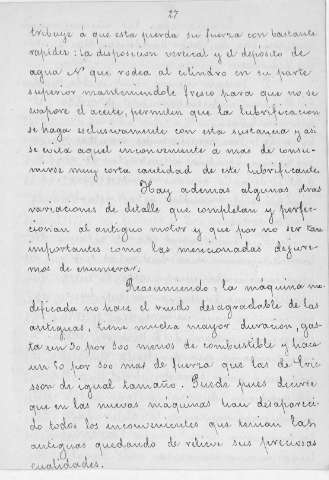 27
tribuye á que esta pierda su fuerza con bastante
rapidez: la disposicion vertical y el depósito de
agua N que rodea al cilindro en su parte
superior manteniendole fresco para que no se
evapore el aceite, permiten que la lubrificacion
se haga esclusivamente con esta sustancia y asi
se evita aquel inconveniente á mas de consu-
mirse muy corta cantidad de este lubrificante.
Hay ademas algunas otras
variaciones de detalle que completan y perfec-
cionan al antiguo motor y que por no ser tan
importantes como las mencionadas dejare-
mos de enumerar.
Reasumiendo: la máquina mo-
dificada no hace el ruido desagradable de las
antiguas, tiene mucha mayor duracion, gas-
ta un 50 por 100 menos de combustible y hace
un 50 por 100 mas de fuerza que las de Eric-
sson de igual tamaño. Puede pues decirse
que en las nuevas máquinas han desapareci-
do todos los inconvenientes que tenian las
antiguas quedando de relieve sus preciosas
cualidades.